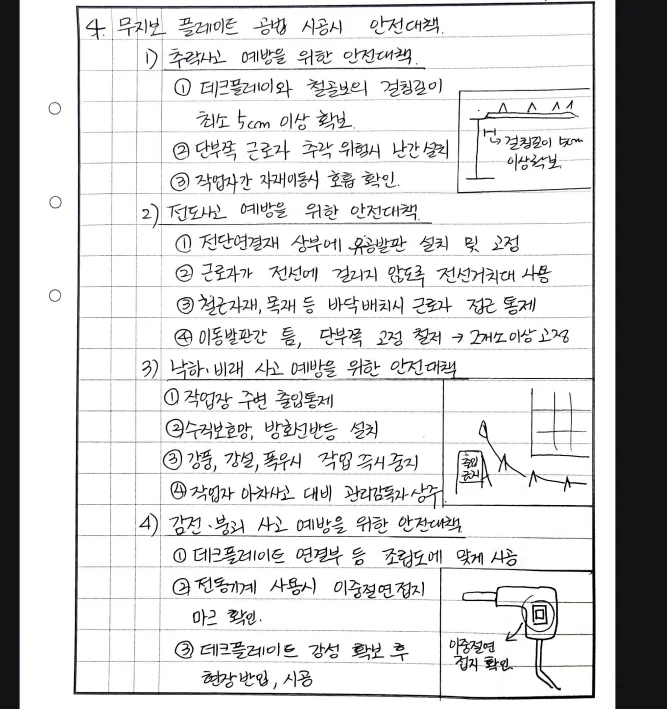 4. 무지보 플레이트 공법 시공시 안전대책.
1) 추락사고 예방을 위한 안전대책.
① 데크플레이와 철골보의 걸침길이
최소 5cm 이상 확보.
② 단부쪽 근로자 추락 위험시 난간설치
③ 작업자간 자재이동시 호흡 확인.
걸침길이 5cm
이상확보
2) 전도사고 예방을 위한 안전대책
① 전단연결재 상부에 유공발판 설치 및 고정
② 근로자가 전선에 걸리지 않도록 전선거치대 사용
③ 철근자재, 목재 등 바닥배치시 근로자 접근 통제
④ 이동발판간 틈, 단부쪽 고정 철저 → 2개소이상 고정
3) 낙하·비래 사고 예방을 위한 안전대책
① 작업장 주변 출입통제
② 수직보호망, 방호선반등 설치
③ 강풍, 강설, 폭우시 작업 즉시중지
④ 작업자 아차사고 대비 관리감독자 상주.
출입
금지
4) 감전·붕괴 사고 예방을 위한 안전대책
① 데크플레이트 연결부 등 조립도에 맞게 시공
② 전동기계 사용시 이중절연접지
마크 확인.
③ 데크플레이트 강성 확보 후
현장반입, 시공
이중절연
접지 확인